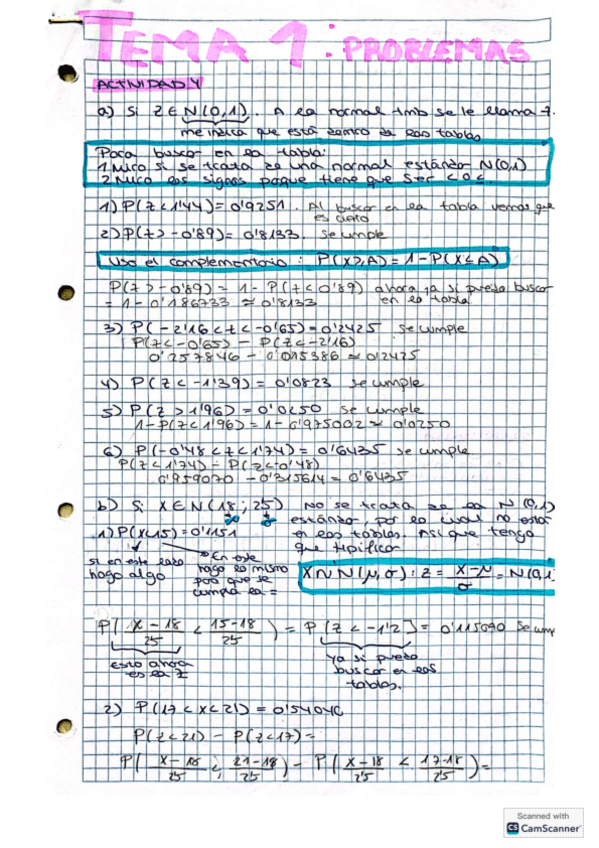 TEMA 1: PROBLEMAS
ACTIVIDAD 4
a) Si Z ∈ N(0,1). A la normal tmb se le llama z.
me indica que está dentro de las tablas
Para buscar en la tabla:
1 Miro si se trata de una normal estándar N(0,1)
2 Miro los signos porque tiene que ser < o ≤.
1) P(z<1'44) = 0'9251. Al buscar en la tabla vemos que
es cierto
2) P(z> -0'89) = 0'8133. se cumple
Uso el complementario: P(X>A) = 1-P(X≤A)
P(z> -0'89) = 1 - P(z<0'89) ahora ya si puedo buscar
= 1-0'186733 ≈ 0'8133 en la tabla
3) P(-2'16<z<-0'65) = 0'2425 se cumple
P(z<-0'65) - P(z<-2'16)
0'257846 - 0'015386 ≈ 0'2425
4) P(z<-1'39) = 0'0823 se cumple
5) P(z>1'96) = 0'0250 se cumple
1-P(z<1'96) = 1-0'975002 ≈ 0'0250
6) P(-0'48<z<1'74) = 0'6435 se cumple
P(z<1'74) - P(z<-0'48)
0'959070 - 0'315614 = 0'6435
b) Si X ∈ N(18; 25) No se trata de la N(0,1)
estándar, por lo cual no está
1) P(X<15) = 0'1151 en las tablas. Así que tengo
que tipificar
si en este lado hago algo
En este hago lo mismo para que se cumpla la =
X∼N(μ,σ): z = x-μ/σ = N(0,1
P( x-18/25 < 15-18/25 ) = P[z < -1'2] = 0'115090 Se cump
Esto ahora es la z
Ya si puedo buscar en las tablas.
2) P(17<x<21) = 0'54040
P(z<21) - P(z<17) =
P( x-18/25 < 21-18/25 ) - P( x-18/25 < 17-18/25 ) =
Scanned with
CS CamScanner